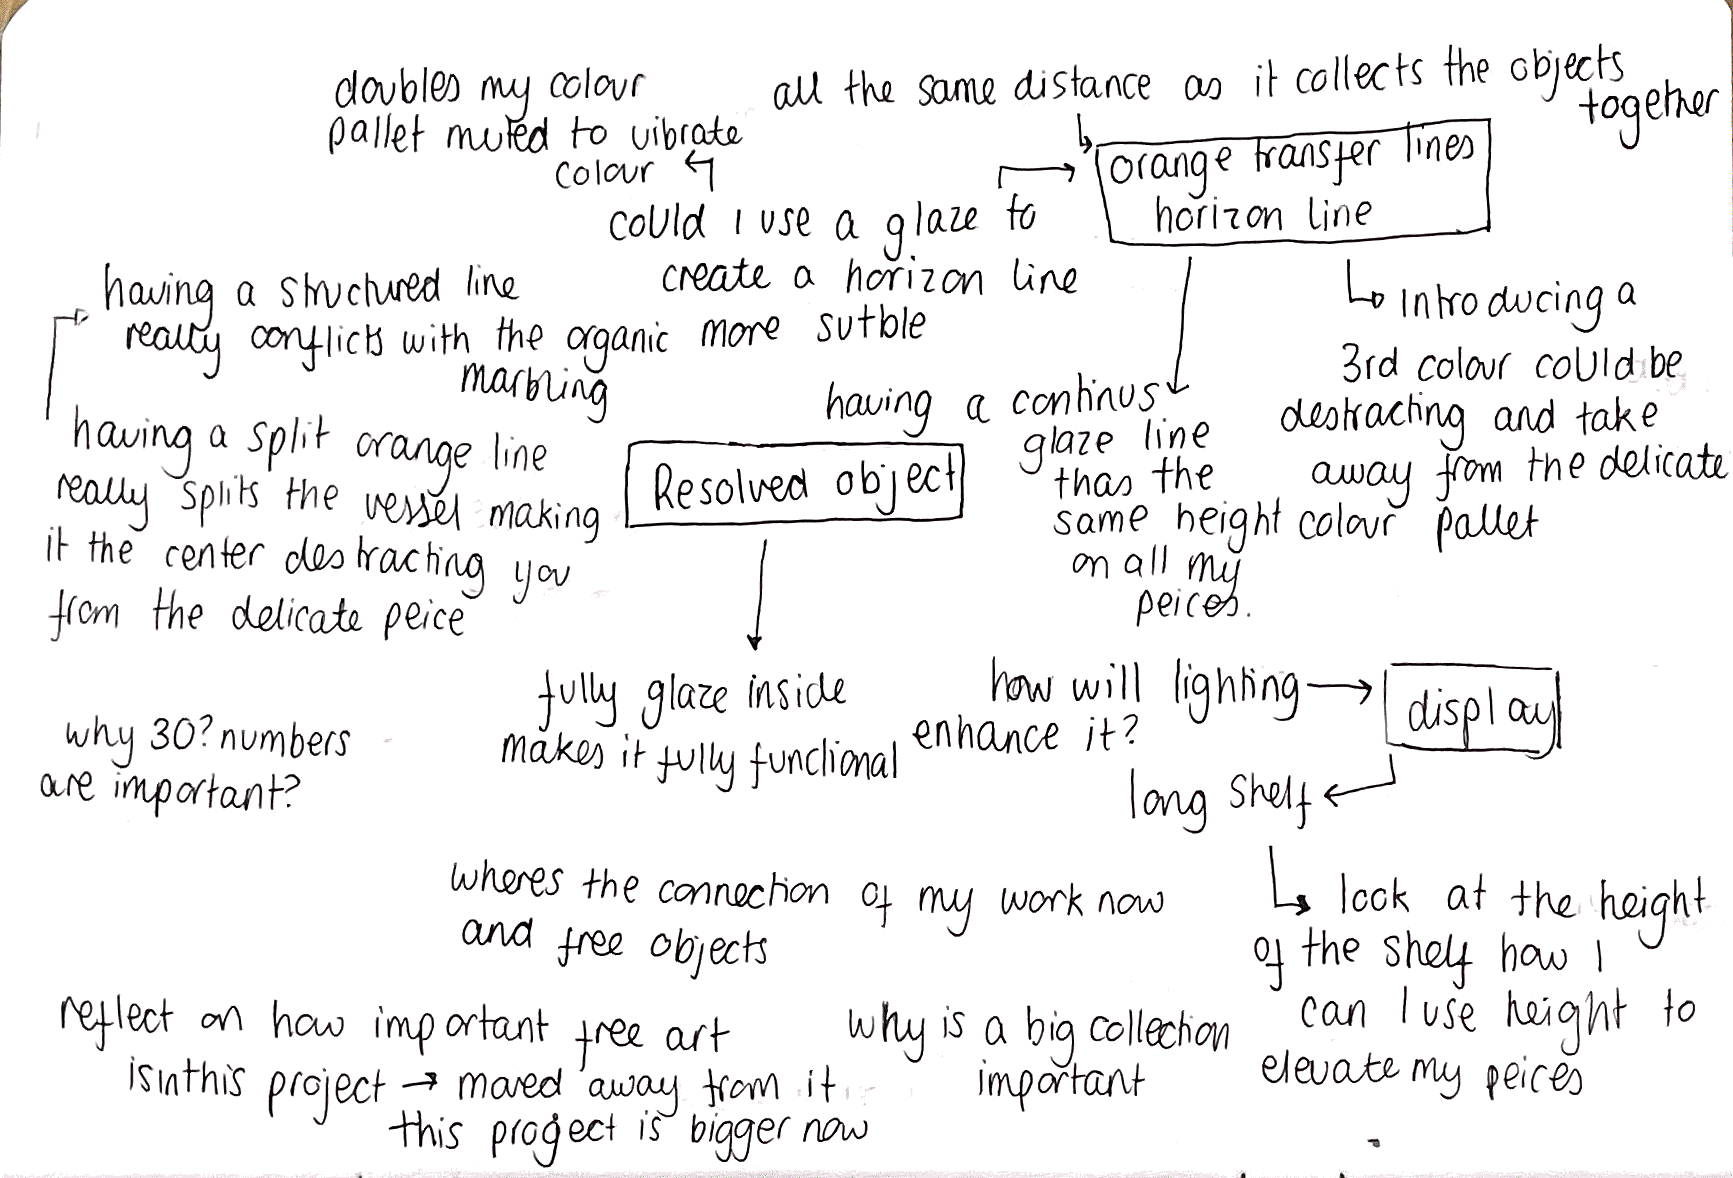 doubles my colour
pallet muted to vibrate
colour
all the same distance as it collects the objects
together
orange transfer lines
horizon line
could I use a glaze to
create a horizon line
having a structured line
really conflicts with the organic more sutble
marbling
Introducing a
3rd colour could be
destracting and take
away from the delicate
colour pallet
having a continus
glaze line
thas the
same height
on all my
peices.
having a split orange line
really splits the vessel making
it the center destracting you
from the delicate peice
Resolved object
fully glaze inside
makes it fully functional
how will lighting
enhance it?
display
long shelf
why 30? numbers
are important?
look at the height
of the shelf how I
can I use height to
elevate my peices
wheres the connection of my work now
and free objects
reflect on how important free art
is in this project → moved away from it
this project is bigger now
why is a big collection
important